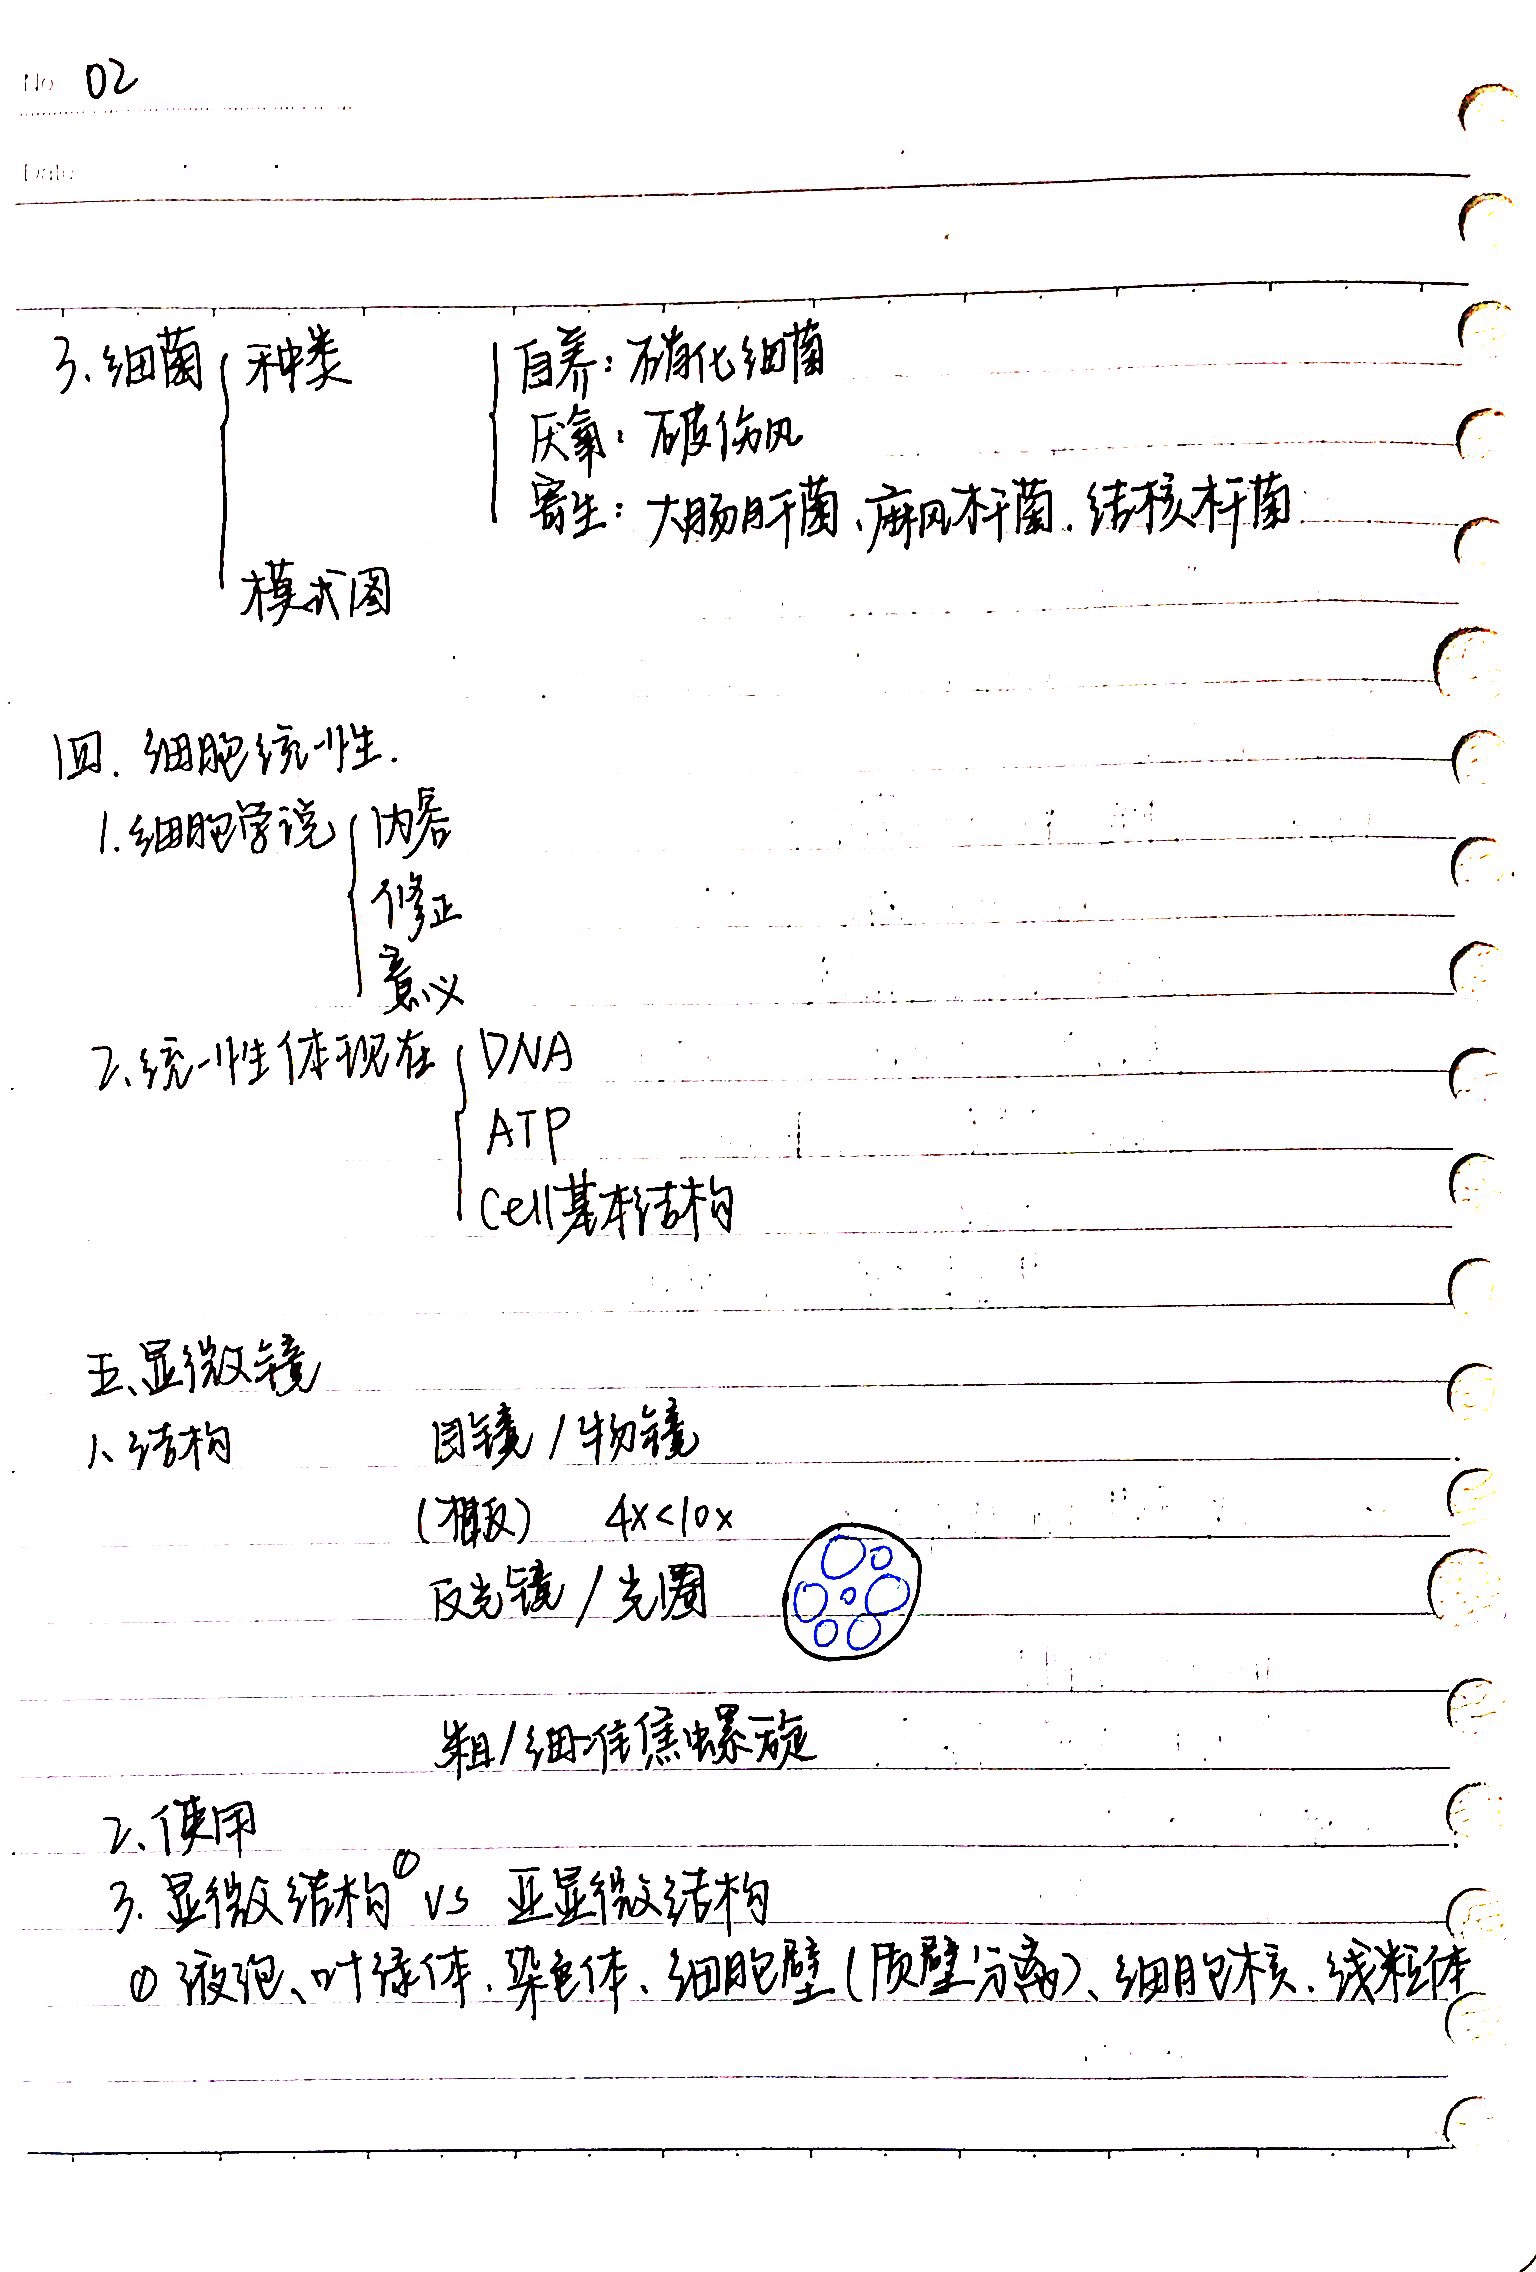 No 02
Date
3.细菌 种类 自养：硝化细菌
厌氧：破伤风
寄生：大肠肝菌、麻风杆菌.结核杆菌
模式图
四.细胞统一性.
1.细胞学说 内容
修正
意义
2.统一性体现在 DNA
ATP
Cell基本结构
五、显微镜
1、结构 目镜/物镜
(相反) 4x<10x
反光镜/光圈
粗/细准焦螺旋
2、使用
3.显微结构① vs 亚显微结构
①液泡、叶绿体.染色体、细胞壁(质壁分离)、细胞核.线粒体